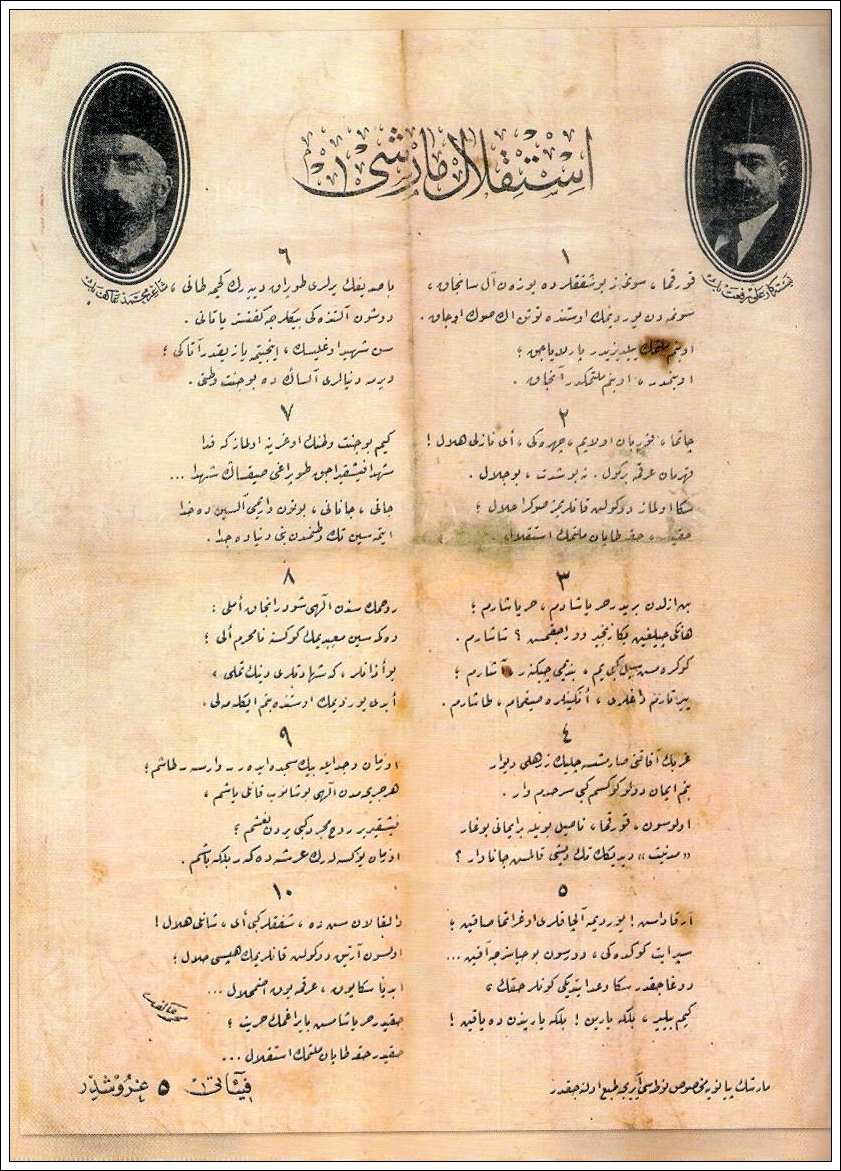 استقلال مارشی
بسته‌کار علی رفعت بك
شاعر محمد عاكف بك
١
قورقما، سونمز بوشفقلرده یوزن آل سانجاق،
سونمه‌دن یوردیمك اوستنده توتن اك صوك اوجاق.
او بنم ملتمك ییلدیزیدر پارلایاجق؛
او بنمدر، او بنم ملتمكدر آنجاق.
٢
چاتما، قوربان اولایم، چهره‌كی، أی نازلی هلال!
قهرمان عرقمه بركول. نه بو شدت، بو جلال.
سكا اولماز دوكولن قانلریمز صوكرا حلال؛
حقیدر، حقه طاپان ملتمك استقلال.
٣
بن ازلدن بریدر حر یاشادم، حر یاشارم؛
هانكی چیلغین بكا زنجیر ووراجقمش؟ شاشارم.
كوكره‌مش سیل كبی یم، بندیمی چیكنر آشارم؛
ییرتارم داغلری، أنكینلره صیغمام، طاشارم.
٤
غربك آفاقنی صارمشسه چلیك زرهلی دیوار
بنم ایمان دولو كوكسم كبی سرحدم وار.
اولوسون، قورقما، ناصیل بویله بر ایمانی بوغار
«مدنیت» دیدیكك تك دیشی قالمش جاناوار؟
٥
آرقاداش! یوردیمه آلچاقلری اوغراتما صاقین؛
سپر ایت كوكده‌كی، دورسون بو حیاسزجه آقین...
دوغاجقدر سكا وعد ایتدیكی كونلر حقك
كیم بیلیر، بلكه یارین! بلكه یاریندن ده یاقین!
٦
باصدیغك یرلری طوپراق دییه‌رك كچمه طانی،
دوشون آلتنده‌كی بیكلرجه كفنسز یاتانی.
سن شهید اوغلیسك، اینجیتمه یازیقدر آتاكی؛
ویرمه دنیالری آلساك ده بوجنت وطنی.
٧
كیم بو جنت وطنك اوغرینه اولماز كه فدا
شهدا فیشقیراجق طوپراغی صیقساك شهدا...
جانی، جانانی، بوتون واریمی آلسین ده خدا
ایتمه‌سین تك وطنمدن بنی دنیاده جدا.
٨
روحمك سندن آلهی شودر انجاق أملی:
دكمه‌سین معبدیمك كوكسنه نامحرم ألی؛
بو أذانلر، كه شهادتلری دینك تملی،
أبدی یوردیمك اوستنده بنم ایكله‌ملی.
٩
اوزمان وجد ایله بیك سجده ایدر - وارسه - طاشم؛
هر جریحه‌مدن آلهی بوشانوب قانلی یاشم،
فیشقیریر روح مجرد كبی یردن نعشم؛
اوزمان یوكسه‌له‌رك عرشه ده‌كر بلكه باشم.
١٠
دالغالان سن ده، شفقلر كبی أی، شانلی هلال!
اولسون آرتیق دوكولن قانلریمك هپسی حلال؛
ابدیا سكا یوق، عرقمه یوق اضمحلال...
حقیدر حر یاشامش بایراغمك حریت؛
حقیدر حقه طاپان ملتمك استقلال...
محمد عاكف
مارشك پیانویه مخصوص نوطه‌سی آیری طبع اولنه‌جقدر
فیئاتی ٥ غروشدر